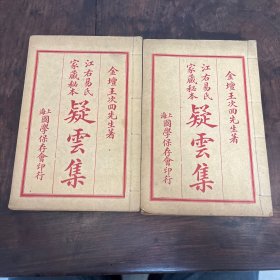 金壇王次回先生著
江右易氏
家藏秘本
疑雲集
上海國學保存會印行
金壇王次回先生著
江右易氏
家藏秘本
疑雲集
上海國學保存會印行